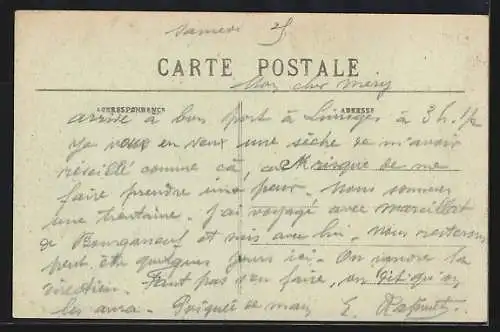 samedi 25
CARTE POSTALE
Mon cher
CORRESPONDANCE
ADRESSE
arrivé à bon port à Limoges à 3h 1/2
Je vous en veux une sèche de m'avoir
réveillé comme cà, au risque de me
faire prendre une peur. Nous sommes
une trentaine. J'ai voyagé avec
de Bourganeuf et suis avec lui. Nous resterons
peut être quelques jours ici. On
Faut pas s'en faire, on dit qu'on
les aura. Poignée de main